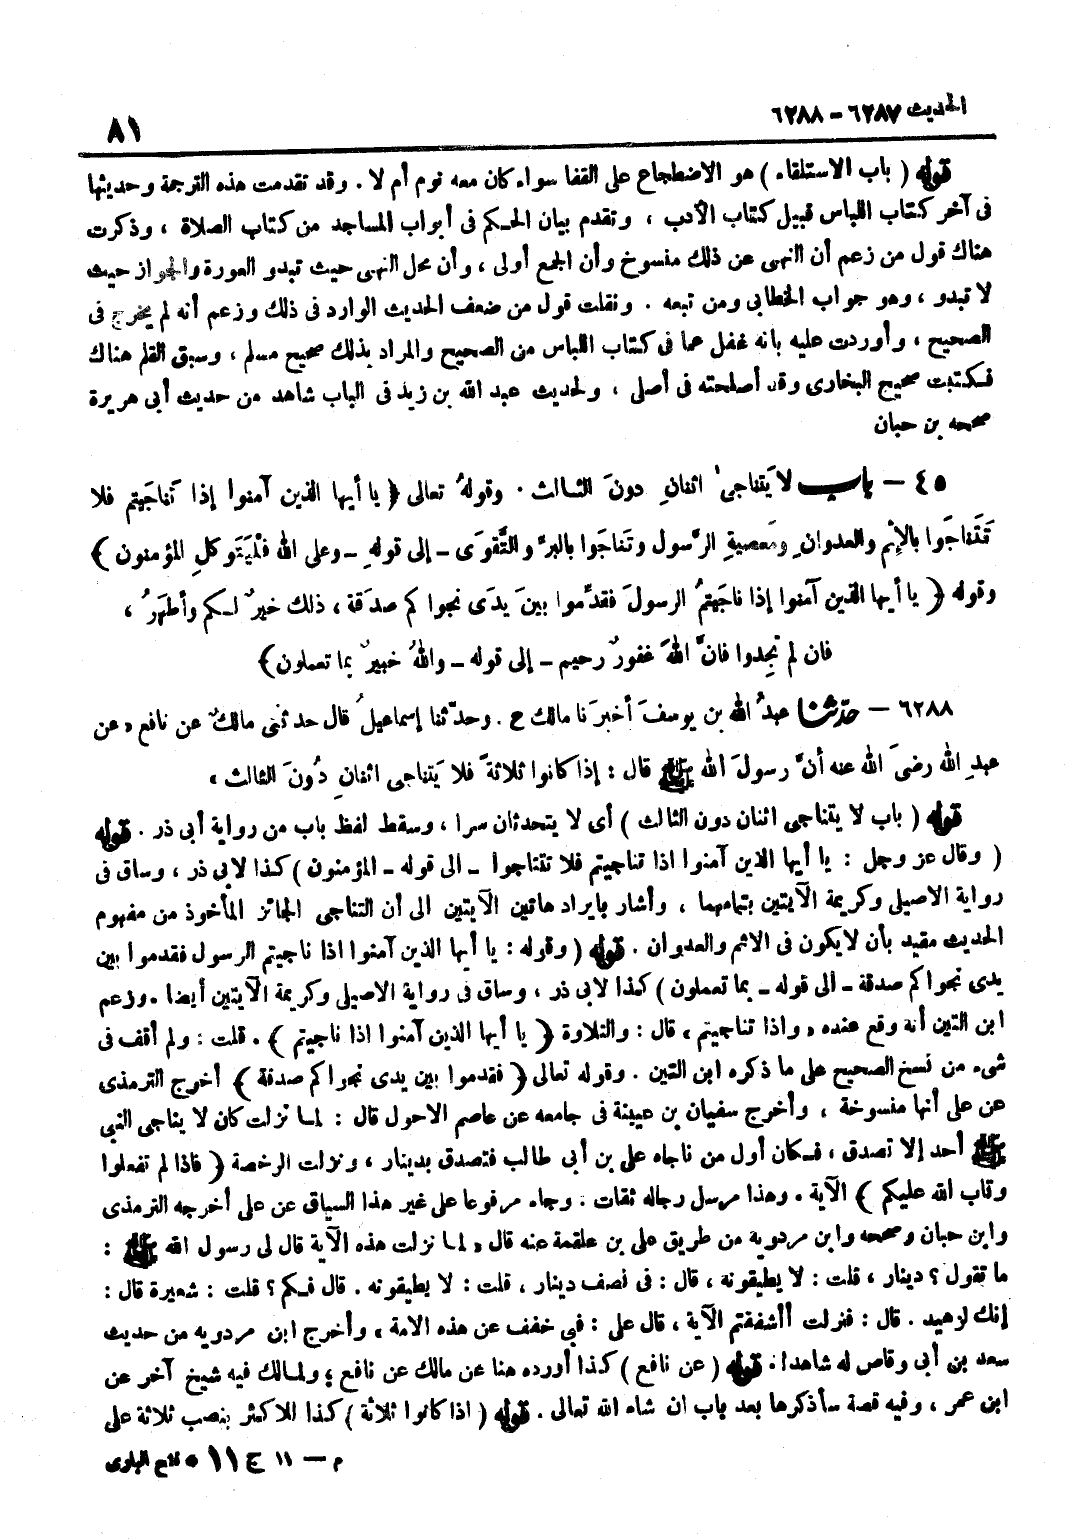 الحديث ٦٢٨٧ - ٦٢٨٨
٨١
قوله ( باب الاستلقاء ) هو الاضطجاع على القفا سواء كان معه نوم أم لا . وقد تقدمت هذه الترجمة وحديثها
فى آخر كتاب اللباس قبيل كتاب الأدب ، وتقدم بيان الحكم فى أبواب المساجد من كتاب الصلاة ، وذكرت
هناك قول من زعم أن النهى عن ذلك منسوخ وأن الجمع أولى ، وأن محل النهى حيث تبدو العورة والجواز حيث
لا تبدو ، وهو جواب الخطابى ومن تبعه . ونقلت قول من ضعف الحديث الوارد فى ذلك وزعم أنه لم يخرج فى
الصحيح ، وأوردت عليه بانه غفل عما فى كتاب اللباس من الصحيح والمراد بذلك صحيح مسلم ، وسبق القلم هناك
فكتبت صحيح البخارى وقد أصلحته فى أصلى ، ولحديث عبد الله بن زيد فى الباب شاهد من حديث أبى هريرة
صححه بن حبان
٤٥ - باب لا يَتناجى اثنانِ دونَ الثالث . وقولهُ تعالى ﴿ يا أيها الذين آمنوا إذا تَناجَيتم فلا
تَتَناجَوا بالإثم والعدوانِ ومَعصيةِ الرَّسول وتَناجَوا بالبرِّ والتَّقوَى - إلى قولهِ - وعلى الله فلْيَتَوكلِ المؤمنون ﴾
وقوله ﴿ يا أيها الذين آمنوا إذا ناجَيتمُ الرسولَ فقدِّموا بينَ يدَى نجواكم صدَقة ، ذلك خيرٌ لكم وأطهَرُ ،
فان لم تجِدوا فانَّ اللهَ غفورٌ رحيم - إلى قوله - واللهُ خبيرٌ بما تعملون ﴾
٦٢٨٨ - حدّثنا عبدُ الله بن يوسفَ أخبرَنا مالك ح . وحدّثنا إسماعيلُ قال حدثنى مالكٌ عن نافع « عن
عبدِ الله رضىَ الله عنه أنَّ رسولَ الله ﷺ قال : إذا كانوا ثلاثةً فلا يَتناجى اثنانِ دُونَ الثالث »
قوله ( باب لا يتناجى اثنان دون الثالث ) أى لا يتحدثان سرا ، وسقط لفظ باب من رواية أبى ذر . قوله
( وقال عز وجل : يا أيها الذين آمنوا اذا تناجيتم فلا تتناجوا - الى قوله - المؤمنون ) كذا لابى ذر ، وساق فى
رواية الاصيلى وكريمة الآيتين بتمامهما ، وأشار بايراد هاتين الآيتين الى أن التناجى الجائز المأخوذ من مفهوم
الحديث مقيد بأن لا يكون فى الاثم والعدوان . قوله ( وقوله : يا أيها الذين آمنوا اذا ناجيتم الرسول فقدموا بين
يدى نجواكم صدقة - الى قوله - بما تعملون ) كذا لابى ذر ، وساق فى رواية الاصيلى وكريمة الآيتين أيضا . وزعم
ابن التين أنه وقع عنده « واذا تناجيتم » قال : والتلاوة ﴿ يا أيها الذين آمنوا اذا ناجيتم ﴾ . قلت : ولم أقف فى
شىء من نسخ الصحيح على ما ذكره ابن التين . وقوله تعالى ﴿ فقدموا بين يدى نجواكم صدقة ﴾ أخرج الترمذى
عن على أنها منسوخة ، وأخرج سفيان بن عيينة فى جامعه عن عاصم الاحول قال : لما نزلت كان لا يناجى النبى
ﷺ أحد إلا تصدق ، فكان أول من ناجاه على بن أبى طالب فتصدق بدينار ، ونزلت الرخصة ﴿ فاذا لم تفعلوا
وتاب الله عليكم ﴾ الآية . وهذا مرسل رجاله ثقات . وجاء مرفوعا على غير هذا السياق عن على أخرجه الترمذى
وابن حبان وصححه وابن مردوية من طريق على بن علقمة عنه قال « لما نزلت هذه الآية قال لى رسول الله ﷺ :
ما تقول ؟ دينار ، قلت : لا يطيقونه ، قال : فى نصف دينار ، قلت : لا يطيقونه . قال فكم ؟ قلت : شعيرة قال :
إنك لزهيد . قال : فنزلت أأشفقتم الآية ، قال على : فبى خفف عن هذه الامة » وأخرج ابن مردويه من حديث
سعد بن أبى وقاص له شاهدا . قوله ( عن نافع ) كذا أورده هنا عن مالك عن نافع ، ولمالك فيه شيخ آخر عن
ابن عمر ، وفيه قصة سأذكرها بعد باب ان شاء الله تعالى . قوله ( اذا كانوا ثلاثة ) كذا للاكثر بنصب ثلاثة على
م - ١١ ج ١١ * فتح البارى